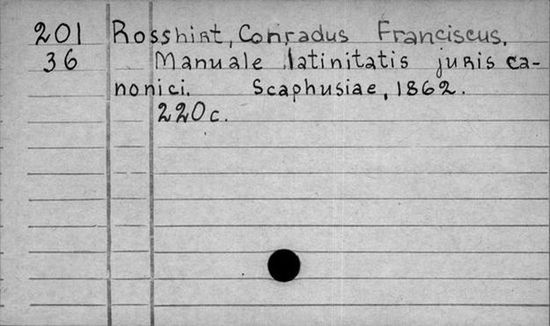 201 Rosshirt, Conradus Franciscus.
36 Manuale latinitatis juris ca-
nonici. Scaphusiae, 1862.
220 c.